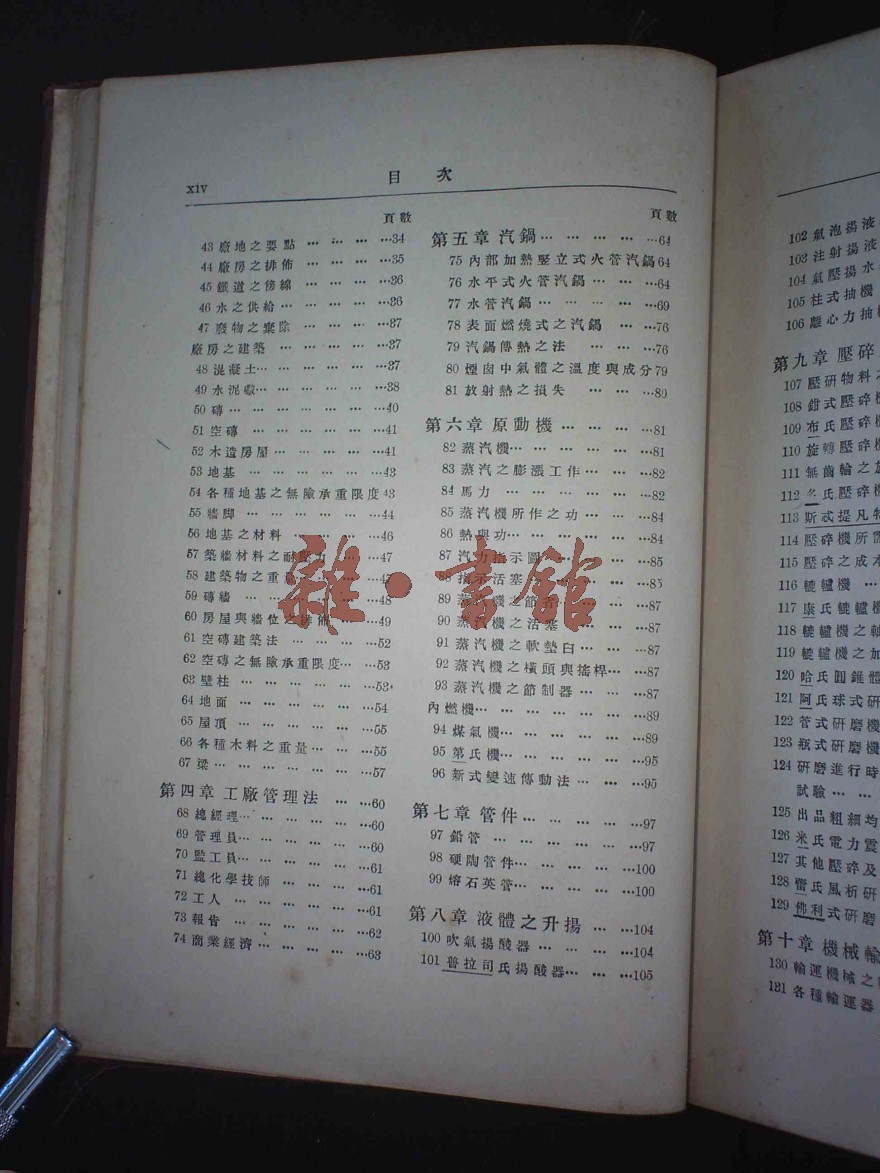 xiv
目 次
頁數
43 廠地之要點 … … … …34
44 廠房之排佈 … … … …35
45 鐵道之傍線 … … … …36
46 水之供給… … … … …36
47 廢物之棄除 … … … …37
廠房之建築 … … … … …37
48 混凝土… … … … … …37
49 水泥 … … … … …38
50 磚… … … … … … …40
51 空磚 … … … … … …41
52 木造房屋… … … … …41
53 地基 … … … … … …43
54 各種地基之無險承重限度 43
55 牆脚 … … … … … …44
56 地基之材料 … … … …46
57 築牆材料之耐壓力 … …47
58 建築物之重 … … …47
59 磚牆 … … … … … …48
60 房屋與牆位之排佈 … …49
61 空磚建築法 … … … …52
62 空磚之無險承重限度… …53
63 壁柱 … … … … … …53
64 地面 … … … … … …54
65 屋頂 … … … … … …55
66 各種木料之重量… … …55
67 梁… … … … … … …57
第四章 工廠管理法 … …60
68 總經理… … … … … …60
69 管理員… … … … … …60
70 監工員… … … … … …61
71 總化學技師 … … … …61
72 工人 … … … … … …61
73 報告 … … … … … …62
74 商業經濟 … … … … …63
頁數
第五章 汽鍋… … … … …64
75 內部加熱豎立式火管汽鍋 64
76 水平式火管汽鍋… … …64
77 水管汽鍋… … … … …69
78 表面燃燒式之汽鍋 … …76
79 汽鍋傳熱之法 … … …76
80 煙囱中氣體之溫度與成分 79
81 放射熱之損失 … … …80
第六章 原動機… … … …81
82 蒸汽機… … … … … …82
83 蒸汽之膨漲工作… … …82
84 馬力 … … … … … …82
85 蒸汽機所作之功… … …84
86 熱與功… … … … … …84
87 汽力指示圖 … … …85
88 指示活塞 … … …85
89 蒸汽機之節 … … …87
90 蒸汽機之活塞 … … …87
91 蒸汽機之軟墊臼… … …87
92 蒸汽機之橫頭與搖桿… …87
93 蒸汽機之節制器… … …87
內燃機… … … … … … …89
94 煤氣機… … … … … …89
95 第氏機… … … … … …95
96 新式變速傳動法… … …95
第七章 管件… … … … …97
97 鉛管… … … … … … …97
98 硬陶管件… … … … …100
99 熔石英管… … … … …100
第八章 液體之升揚 … …104
100 吹氣揚酸器… … … …104
101 普拉司氏揚酸器… … …105
102 氣泡揚液
103 注射揚液
104 氣壓揚水
105 柱式抽機
106 離心力抽
第九章 壓碎
107 壓研物料之
108 鉗式壓碎
109 布氏壓碎
110 旋轉壓碎
111 無齒輪之
112 氏壓碎
113 斯忒提凡
114 壓碎機所需
115 壓碎之成本
116 轆轤機 …
117 康氏轆轤機
118 轆轤機之
119 轆轤機之加
120 哈氏圓錐體
121 阿氏球式研
122 管式研磨機
123 瓶式研磨機
124 研磨進行時
試驗… …
125 出品粗細均
126 米氏電力震
127 其他壓碎及
128 雷氏風析研
129 佛利式研磨
第十章 機械輸
130 輸運機械之
131 各種輸運器
雜·書館